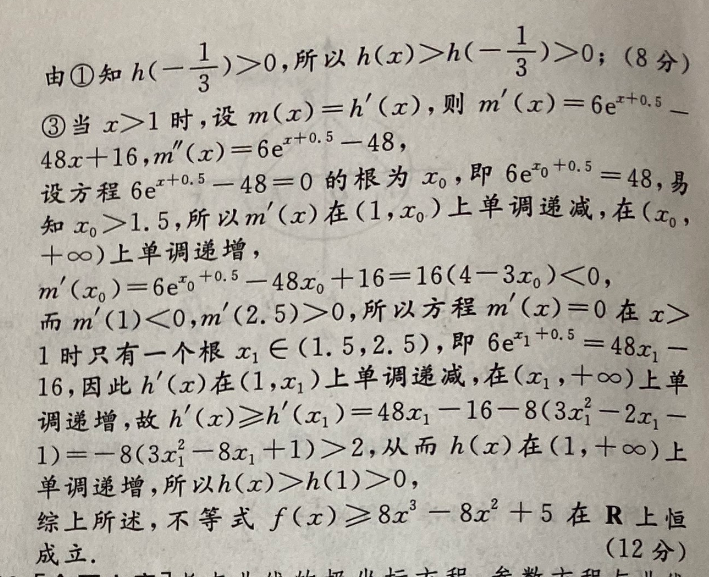 由①知 h(-1/3)>0,所以 h(x)>h(-1/3)>0; (8 分)
③当 x>1 时,设 m(x)=h′(x),则 m′(x)=6e^{x+0.5}-
48x+16,m″(x)=6e^{x+0.5}-48,
设方程 6e^{x+0.5}-48=0 的根为 x₀,即 6e^{x₀+0.5}=48,易
知 x₀>1.5,所以m′(x)在(1,x₀)上单调递减,在(x₀,
+∞)上单调递增,
m′(x₀)=6e^{x₀+0.5}-48x₀+16=16(4-3x₀)<0,
而 m′(1)<0,m′(2.5)>0,所以方程 m′(x)=0 在 x>
1 时只有一个根 x₁∈(1.5,2.5),即 6e^{x₁+0.5}=48x₁-
16,因此 h′(x)在(1,x₁)上单调递减,在(x₁,+∞)上单
调递增,故 h′(x)≥h′(x₁)=48x₁-16-8(3x₁²-2x₁-
1)=-8(3x₁²-8x₁+1)>2,从而 h(x)在(1,+∞)上
单调递增,所以h(x)>h(1)>0,
综上所述,不等式 f(x)≥8x³-8x²+5 在 R 上恒
成立. (12 分)